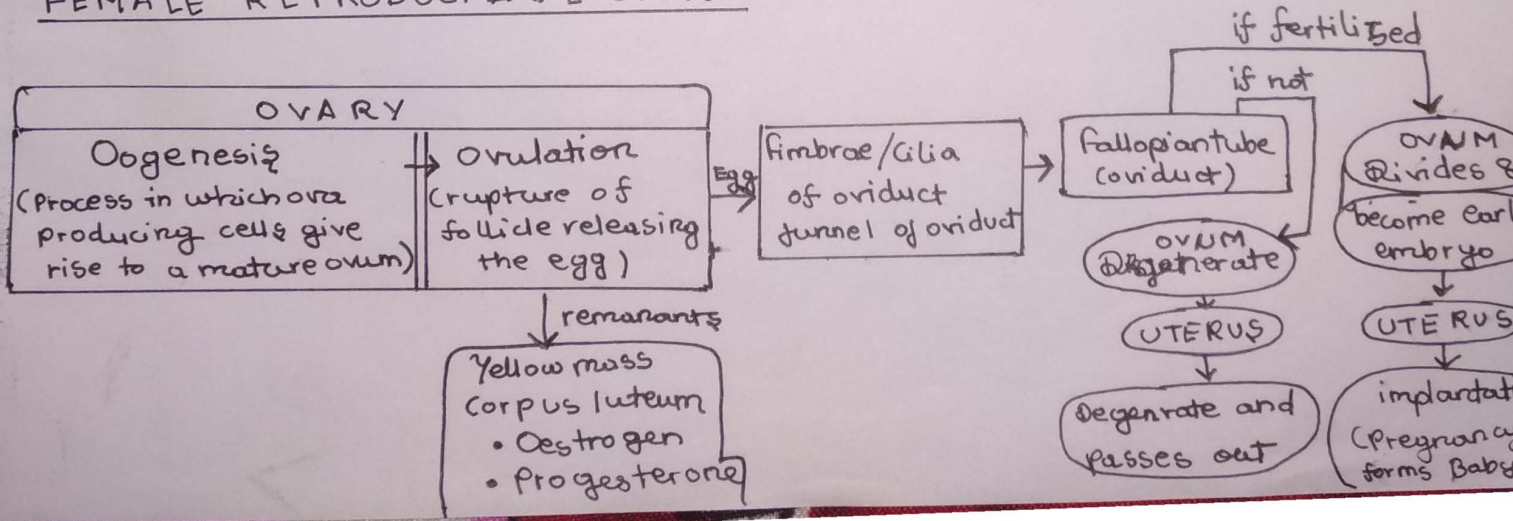 FEMALE
if fertilized
if not
OVARY
Oogenesis
(Process in which ova
producing cells give
rise to a mature ovum)
Ovulation
(rupture of
follicle releasing
the egg)
Egg
fimbrae/Cilia
of oviduct
funnel of oviduct
fallopian tube
(oviduct)
OVUM
Degenerate
UTERUS
Degenrate and
passes out
OVUM
Divides &
become
embryo
UTERUS
(Pregnancy
forms Baby
remanants
Yellow mass
Corpus luteum
• Oestrogen
• Progesterone